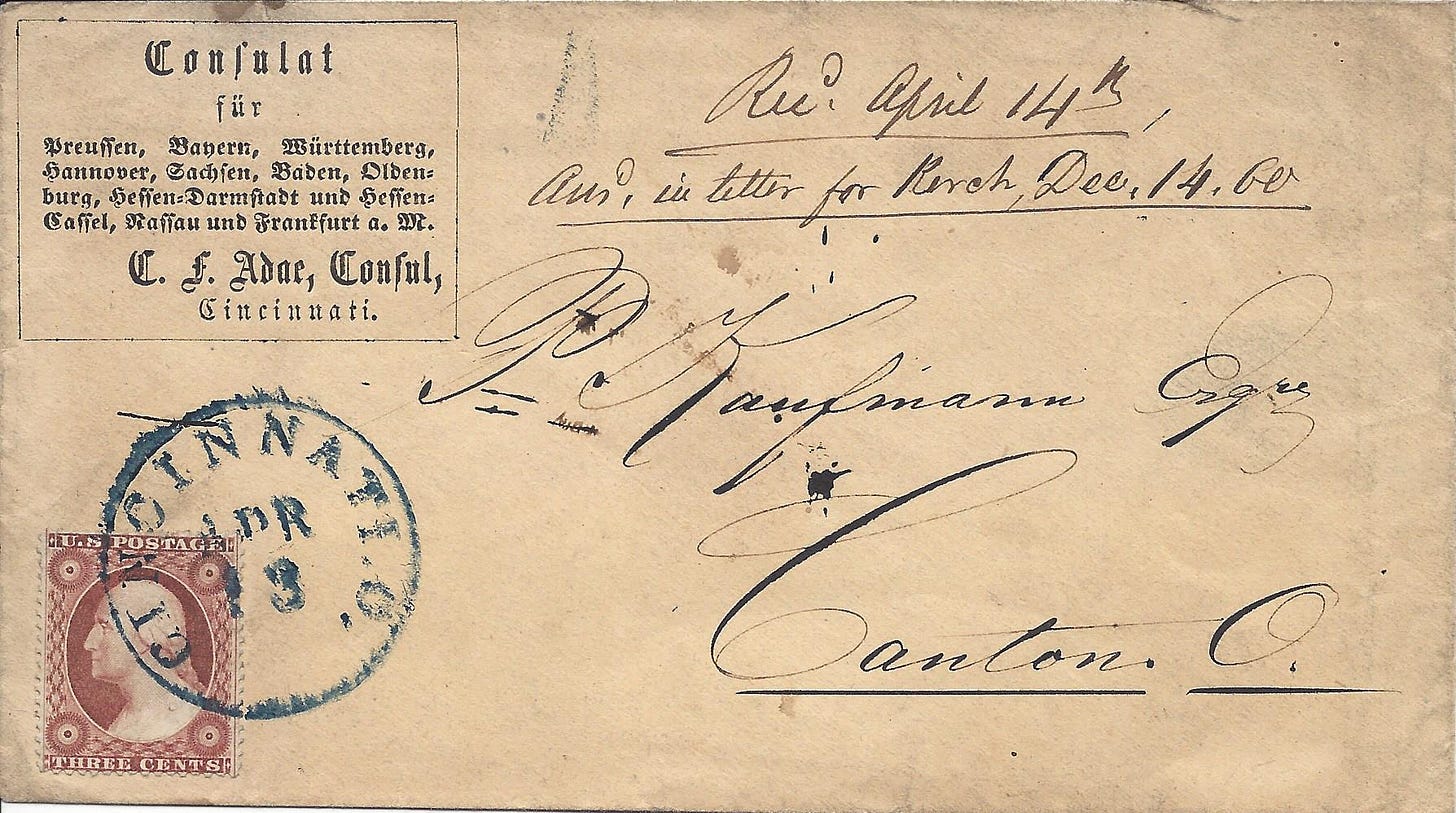 Consulat
für
Preussen, Bayern, Württemberg,
Hannover, Sachsen, Baden, Olden-
burg, Hessen-Darmstadt und Hessen-
Cassel, Nassau und Frankfurt a. M.
C. F. Adae, Consul,
Cincinnati.
Recd. April 14th,
Ansd. in letter for Kerch, Dec. 14. 60
P. Kaufmann Esqre
Canton. O.
CINCINNATI. O.
APR
13
U.S. POSTAGE
THREE CENTS